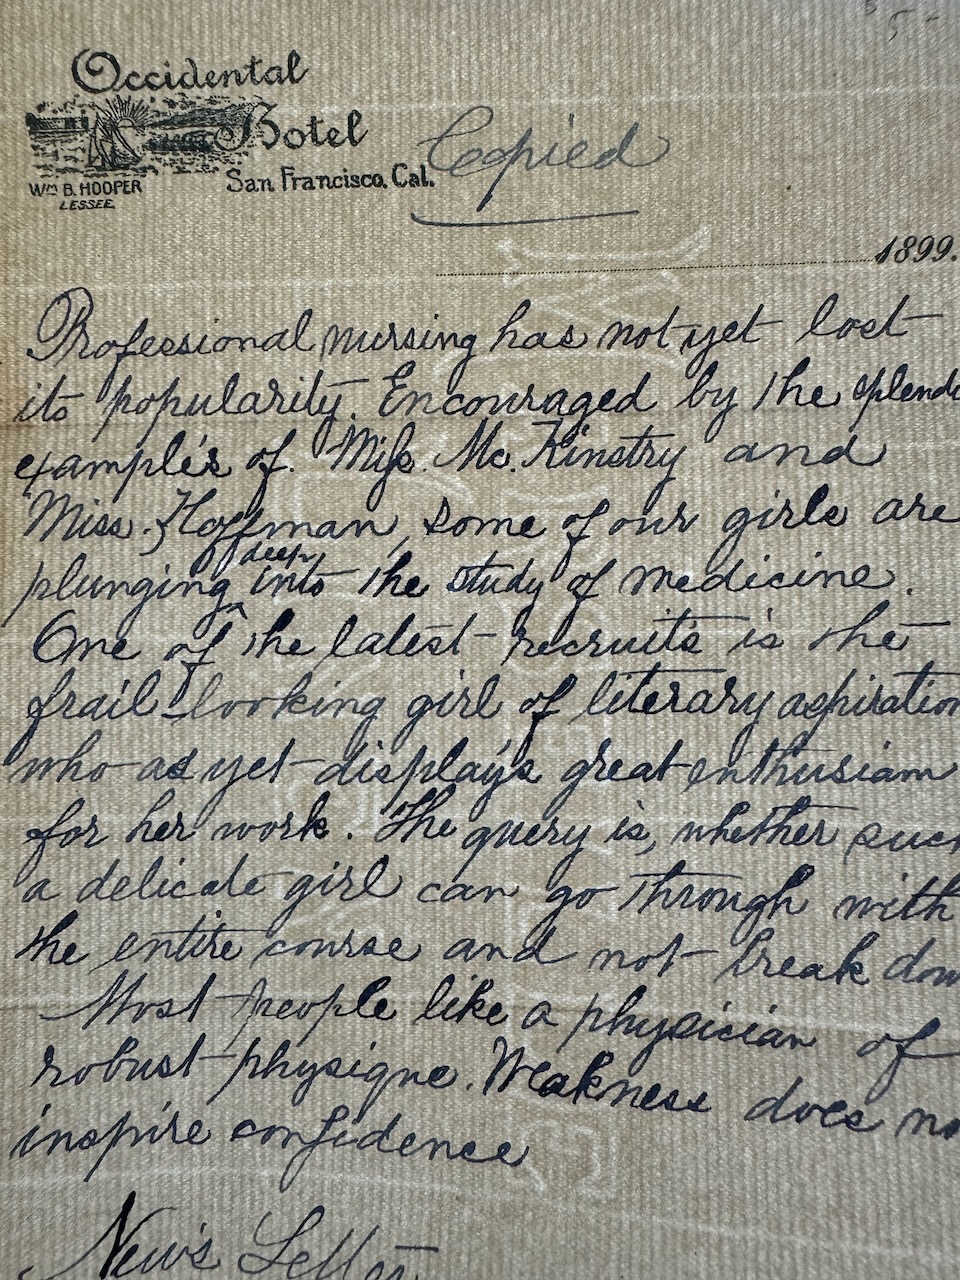 Occidental
Hotel
San Francisco, Cal.
Wm B. HOOPER
LESSEE
Copied
1899.
Professional nursing has not yet lost
its popularity. Encouraged by the splendi
example's of. Miss. Mc. Kinstry and
Miss. Hoffman, some of our girls are
deep
plunging ^ into the study of medicine.
One of the latest recruits is the
frail-looking girl of literary aspiration
who as yet displays great enthusiam
for her work. The query is, whether such
a delicate girl can go through with
the entire course and not break dow
Most people like a physician of
robust physique. Weakness does no
inspire confidence
News Letter